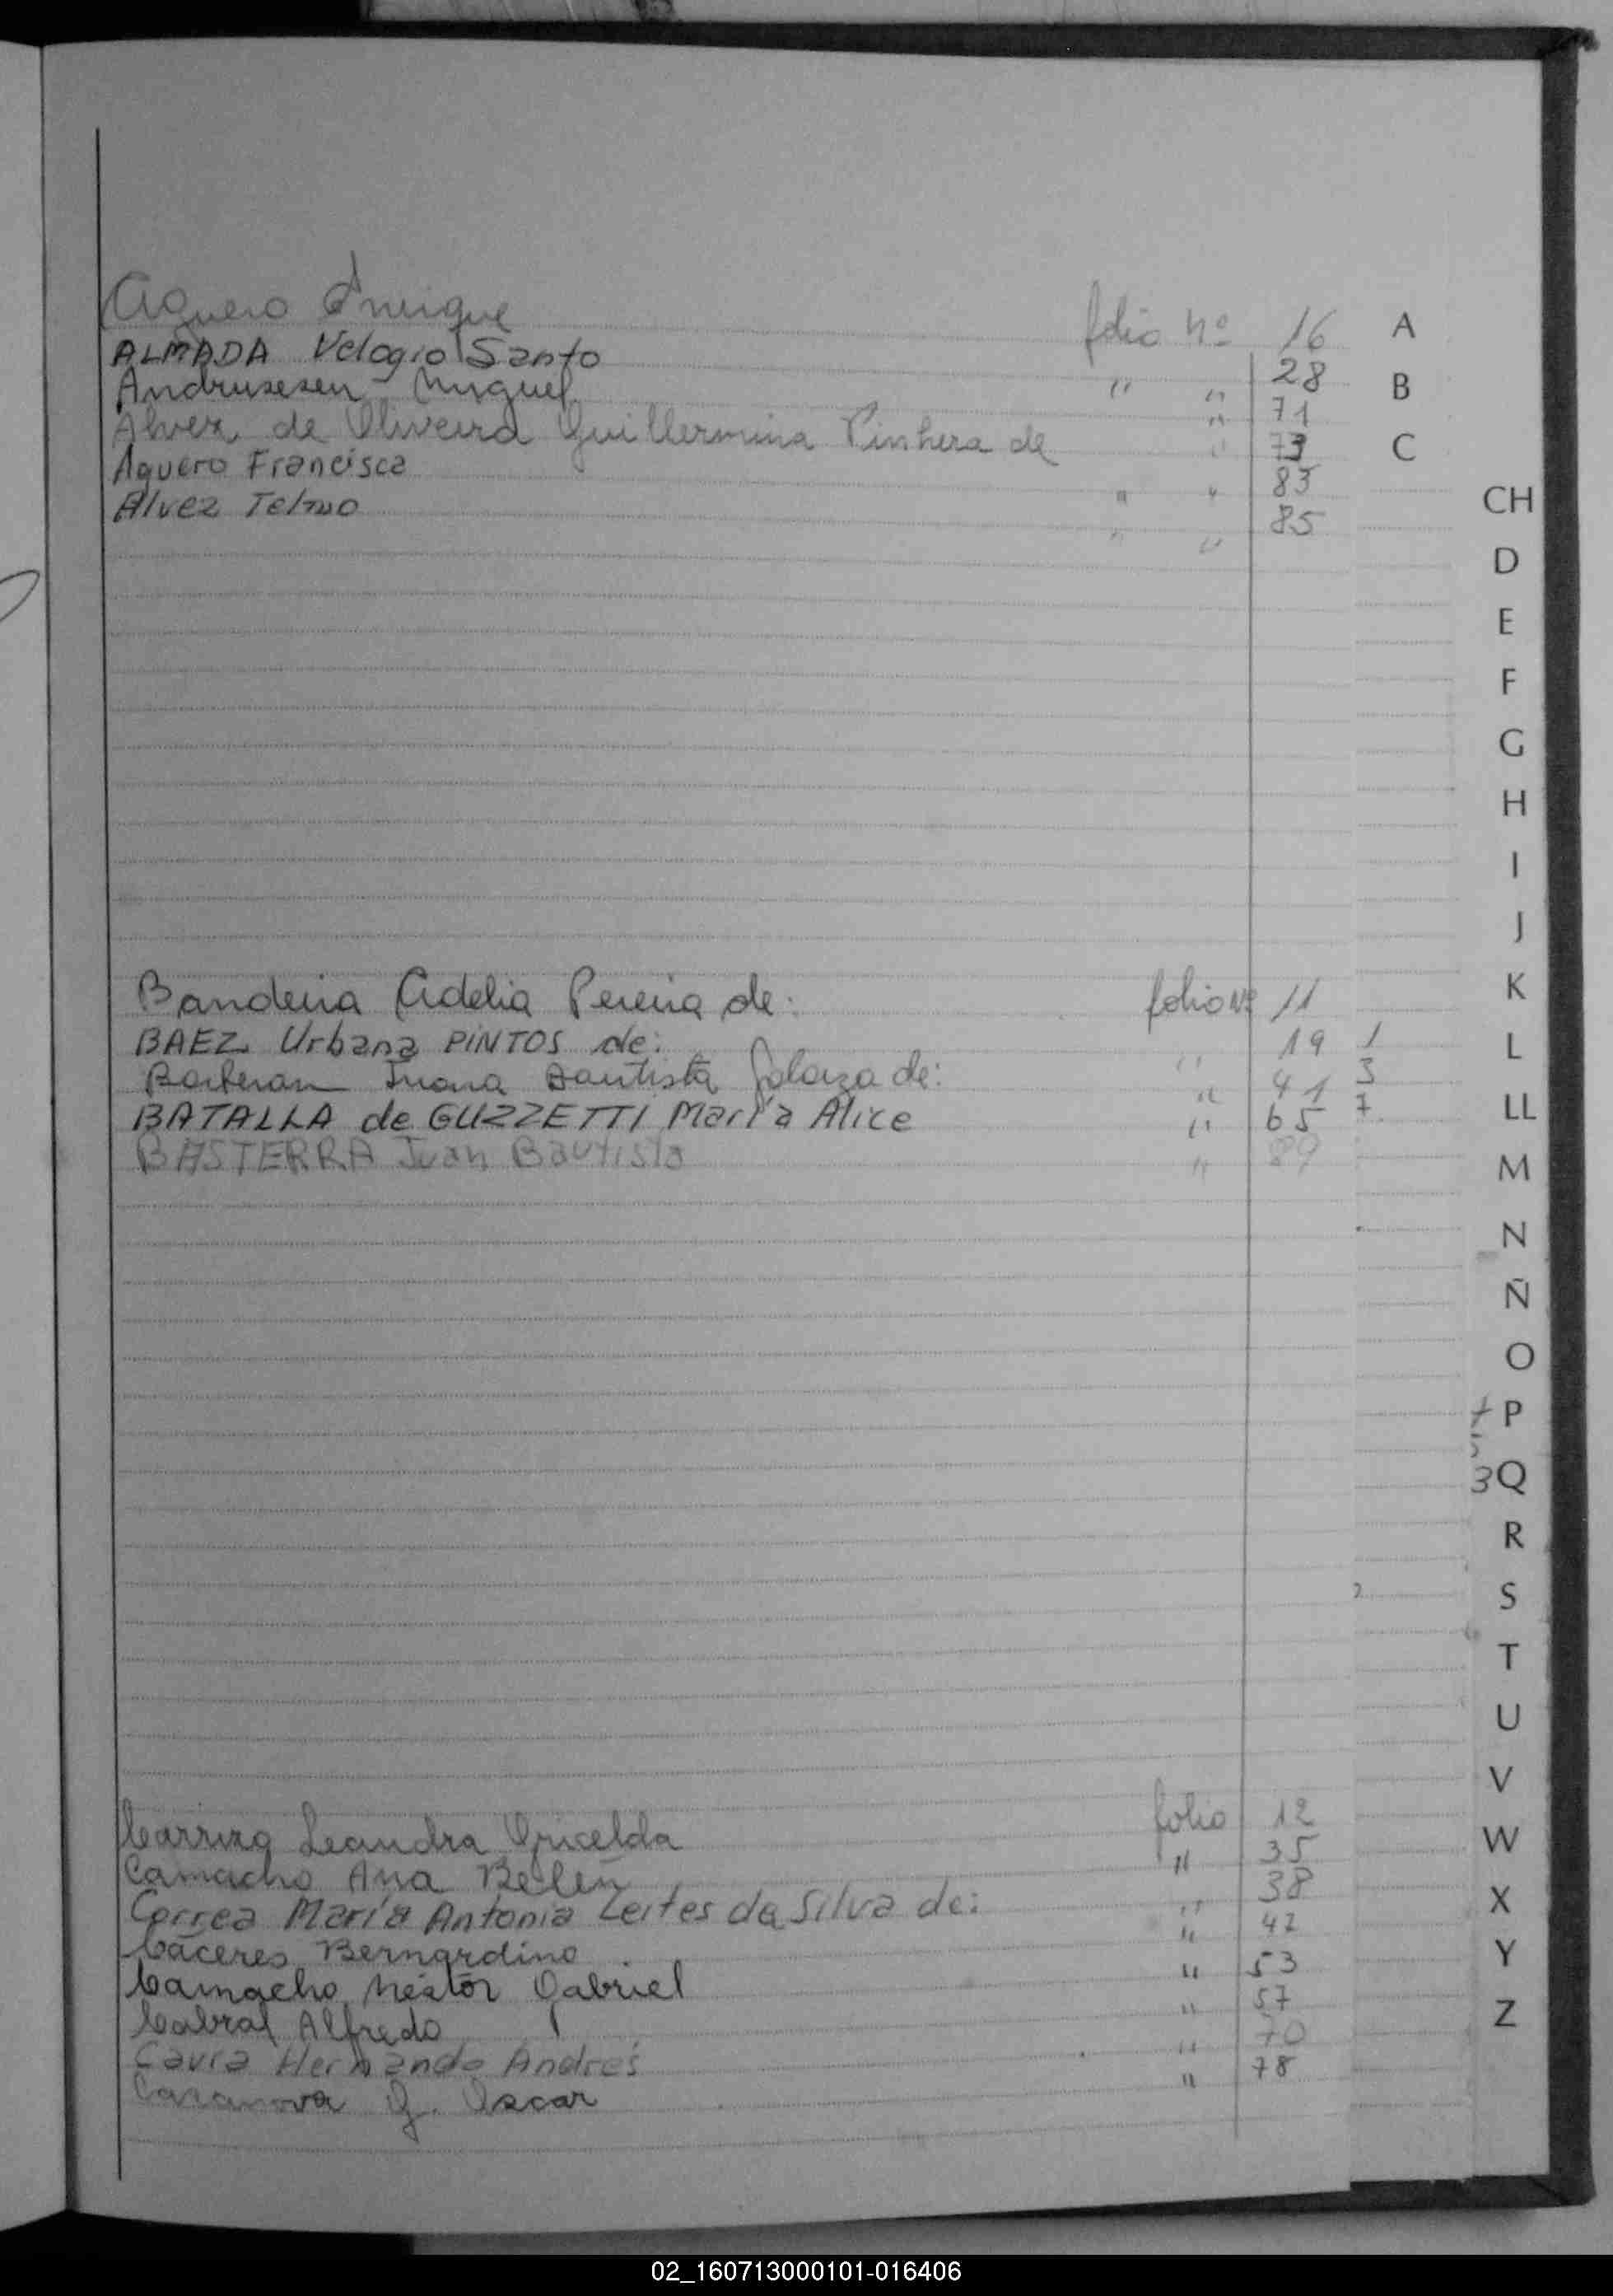 Aguero Enrique folio nº 16 A
ALMADA Velogio Santo " " 28
Andrusesen Miguel " 71 B
Alvez de Oliveira Guillermina Pinhera de " 73 C
Aguero Francisca " " 83
Alvez Telmo " " 85
CH
D
E
F
G
H
I
J
Bandeira Adelia Pereira de: folio Nº 11 K
BAEZ Urbana PINTOS de: " 19 1 L
Juana Bautista de: " 41 3
BATALLA de GUZZETTI María Alice " 65 7 LL
BASTERRA Juan Bautista " 89 M
N
Ñ
O
7 P
5
3 Q
R
2 S
T
U
V
Leandra Griselda folio 12 W
Camacho Ana Belén " 35
Correa María Antonia Leites da Silva de: " 38 X
Cáceres Bernardino " 42
Camacho Néstor Gabriel " 53 Y
Cabral Alfredo " 57
Hernando Andrés " 70 Z
Casanova J. Oscar " 78
02_160713000101-016406